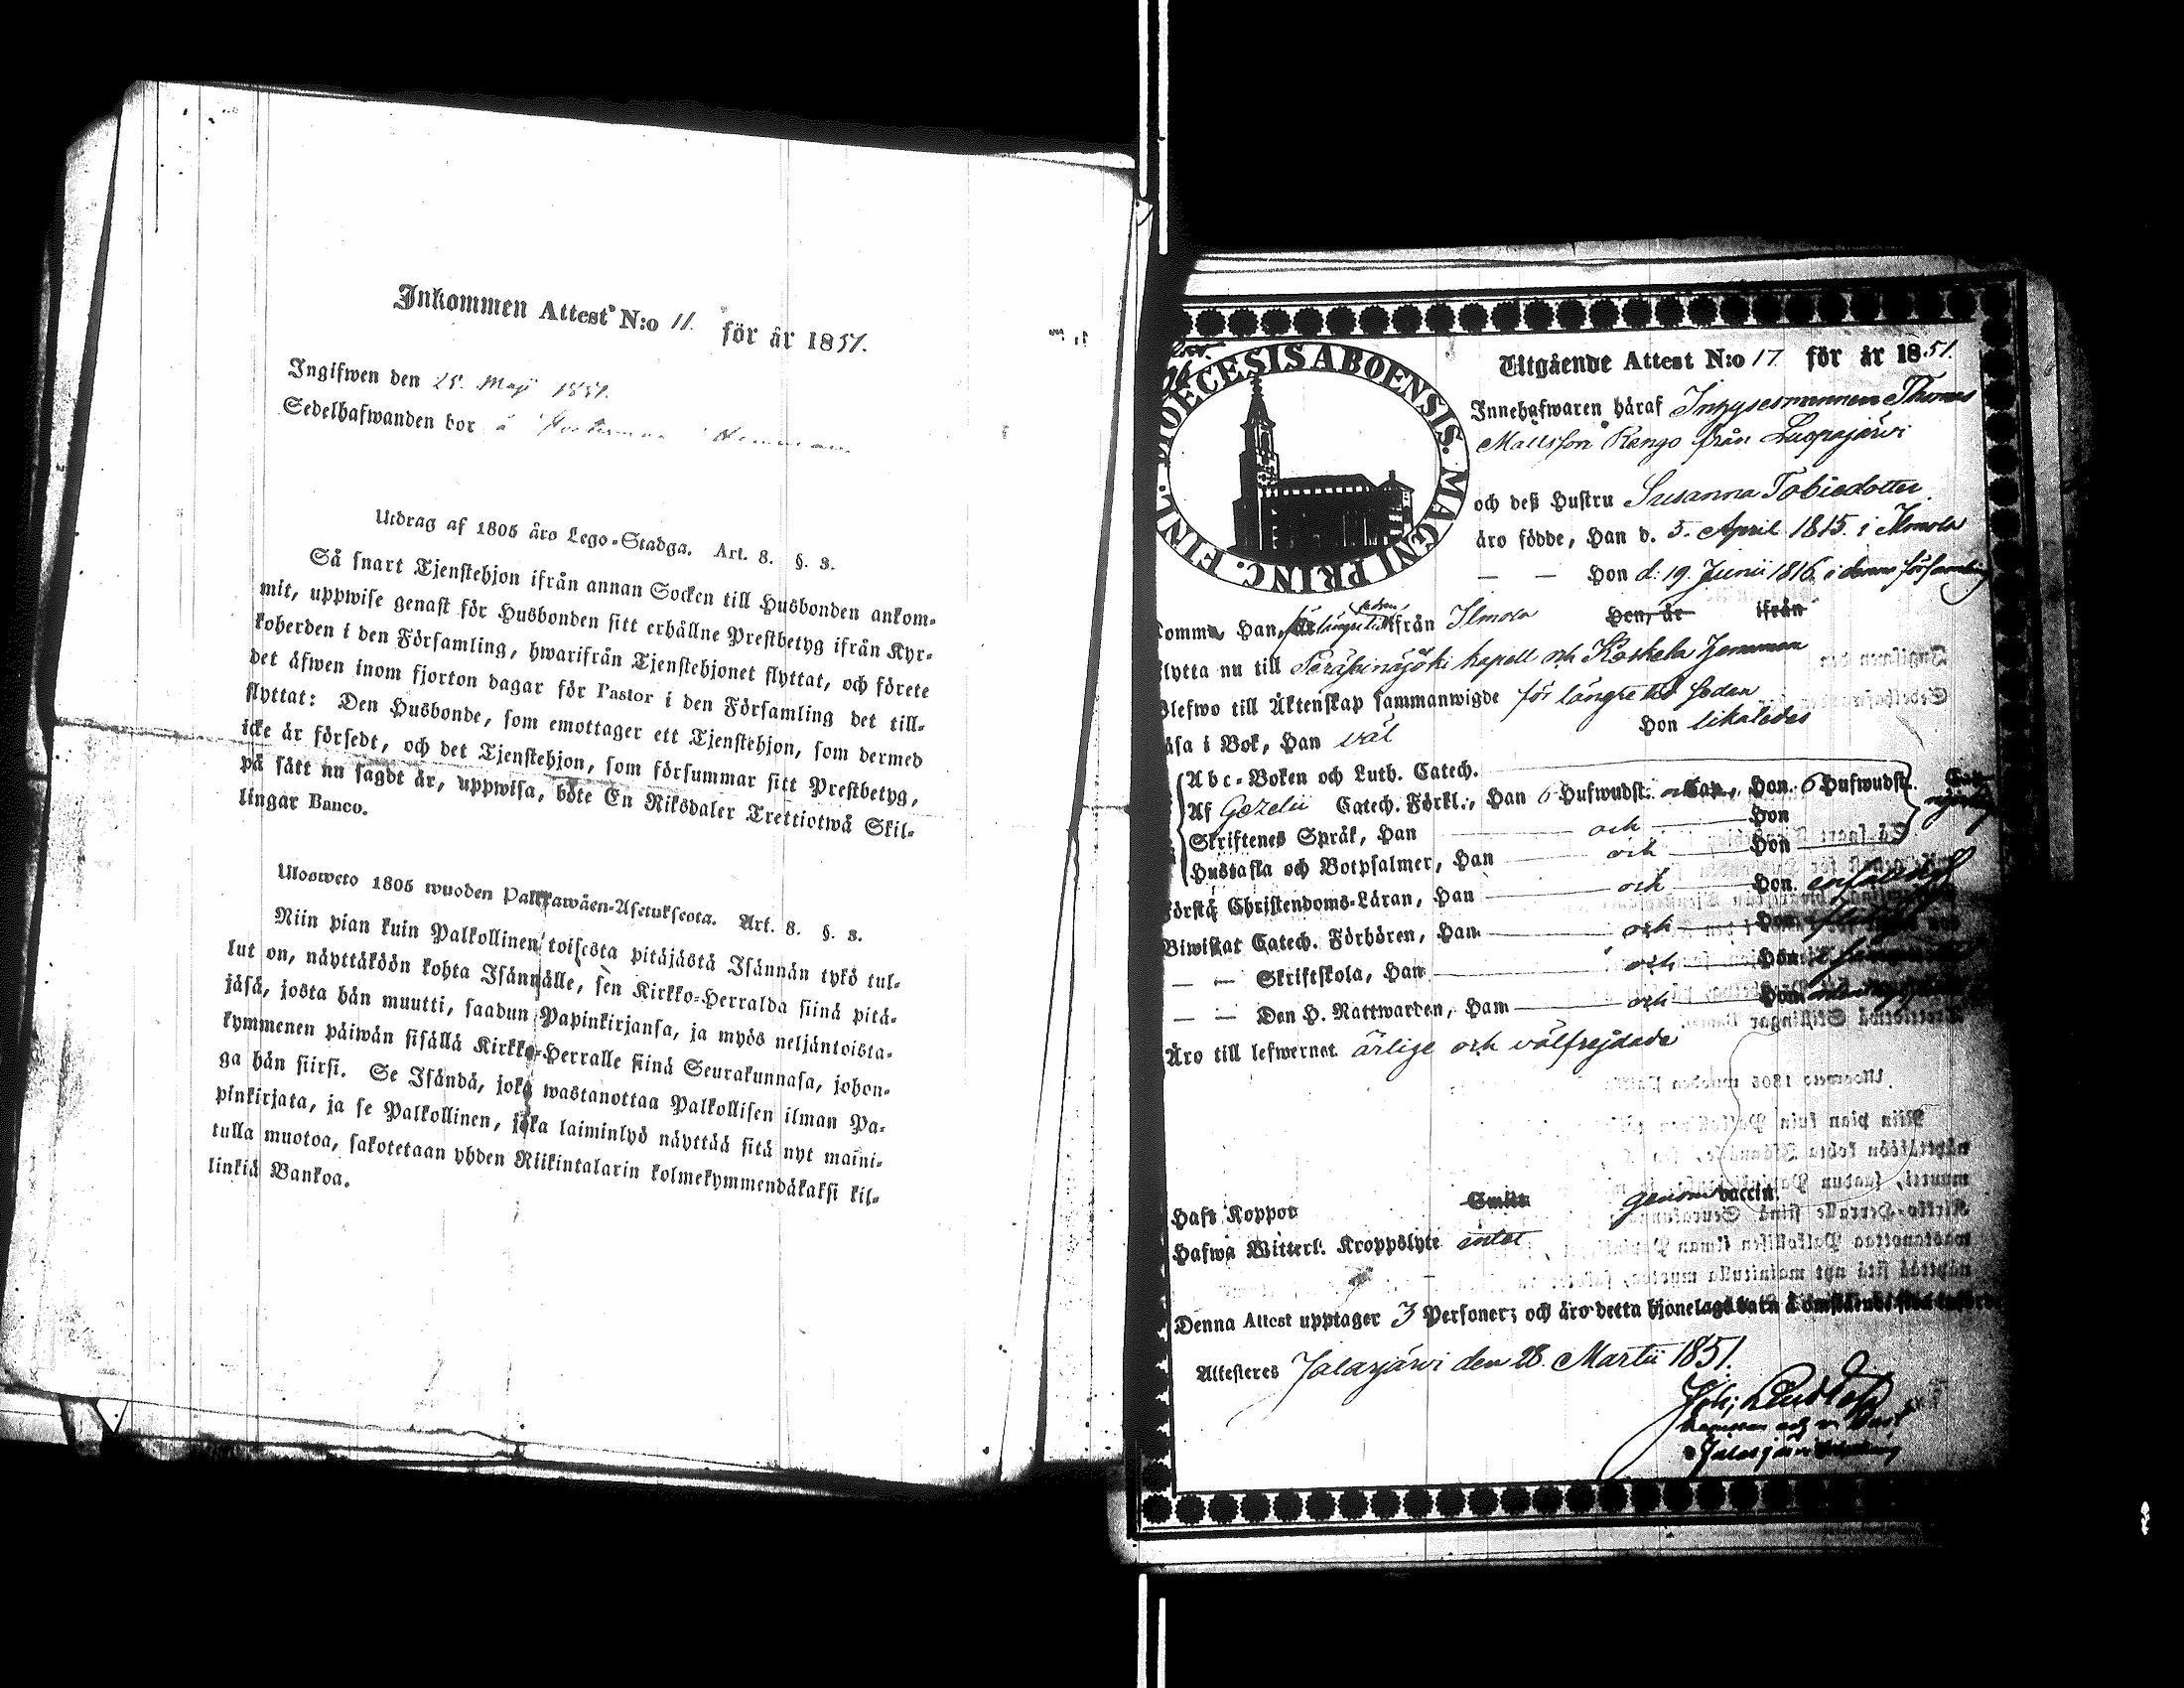 Inkommen Attest N:o 11. för år 1851.
Ingifwen den 25. Maji 1851.
Sedelhafwanden bor å
Utdrag af 1805 års Lego-Stadga. Art. 8. §. 3.
Så snart Tjenstehjon ifrån annan Socken till Husbonden ankom-
mit, uppwise genast för Husbonden sitt erhållne Prestbetyg ifrån Kyr-
koherden i den Församling, hwarifrån Tjenstehjonet flyttat, och förete
det äfwen inom fjorton dagar för Pastor i den Församling det till-
flyttat: Den Husbonde, som emottager ett Tjenstehjon, som dermed
icke är försedt, och det Tjenstehjon, som försummar sitt Prestbetyg,
på sätt nu sagdt är, uppwisa, böte En Riksdaler Trettiotwå Skil-
lingar Banco.
Ulosweto 1805 wuoden Palkkawäen-Asetukseota. Art. 8. §. 3.
Niin pian kuin Palkollinen toisesta pitäjästä Isännän tykö tul-
lut on, näyttäköön kohta Isännälle, sen Kirkko-Herralda siinä pitä-
jäsä, josta hän muutti, saadun Papinkirjansa, ja myös neljäntoista-
kymmenen päiwän sisällä Kirkko-Herralle siinä Seurakunnasa, johon-
ga hän siirsi. Se Isändä, joka wastanottaa Palkollisen ilman Pa-
pinkirjata, ja se Palkollinen, joka laiminlyö näyttää sitä nyt maini-
tulla muotoa, sakotetaan yhden Riikintalarin kolmekymmendäkaksi kil-
linkiä Bankoa.
DIOECESIS ABOENSIS. MAGNI PRINC. FINL.
Utgående Attest N:o 17 för år 1851.
Innehafwaren häraf Inhysesmannen Thomas
Mattsson Rengo från Luopajärwi
och deß Hustru Susanna Tobiedotter
äro födde, Han d. 5. April 1815. i Ilmola
— — Hon d: 19. Junii 1816 i denna församling
Komma Han, för längre tid sedan ifrån Ilmola Hon, år ifrån
flytta nu till Peräseinäjoki kapell och Koskela hemman
Blefwo till Äktenskap sammanwigde för längre tid sedan
läsa i Bok, Han wäl Hon likaledes
Abc-Boken och Luth. Catech.
Af Gezelii Catech. Förkl., Han 6 Hufwudst. och Hon 6 Hufwudst.
Skriftenes Språk, Han och Hon
Hustafla och Botpsalmer, Han och Hon
Första Christendoms-Läran, Han och Hon
Biwistat Catech. Förhören, Han och Hon
— — Skriftskola, Han och Hon
— — Den H. Nattwarden, Han och Hon
Äro till lefwernet ärlige och wälfrejdade
Haft Koppor Smitt. genom vaccin.
Hafwa Witterl. Kroppslyte intet
Denna Attest upptager 3 Personer; och äro detta hjonelags barn å omstående sida
Attesteres Jalasjärwi den 28. Martii 1851.